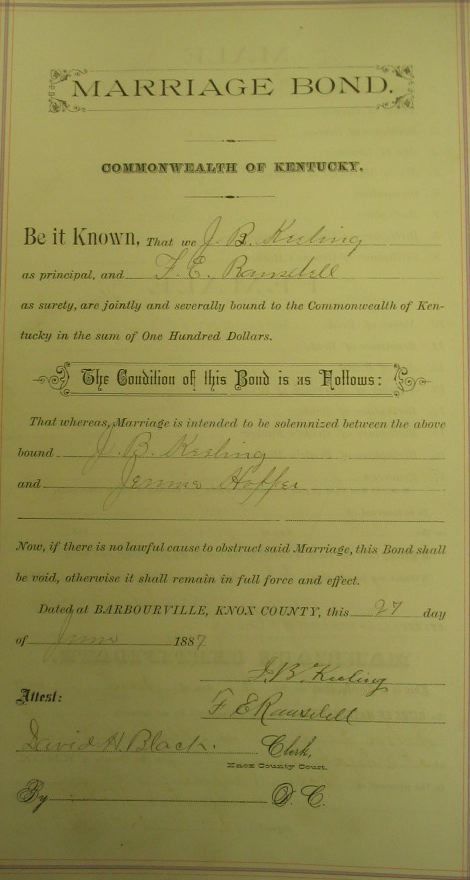 MARRIAGE BOND.
COMMONWEALTH OF KENTUCKY.
Be it Known, That we J. B. Keeling
as principal, and F. E. Ramsdell
as surety, are jointly and severally bound to the Commonwealth of Ken-
tucky in the sum of One Hundred Dollars.
The Condition of this Bond is as Follows:
That whereas, Marriage is intended to be solemnized between the above
bound J. B. Keeling
and Jennie Hopper
Now, if there is no lawful cause to obstruct said Marriage, this Bond shall
be void, otherwise it shall remain in full force and effect.
Dated at BARBOURVILLE, KNOX COUNTY, this 27 day
of June 1887
J. B. Keeling
Attest:
F E Ramsdell
David H. Black. Clerk,
Knox County Court.
By D. C.